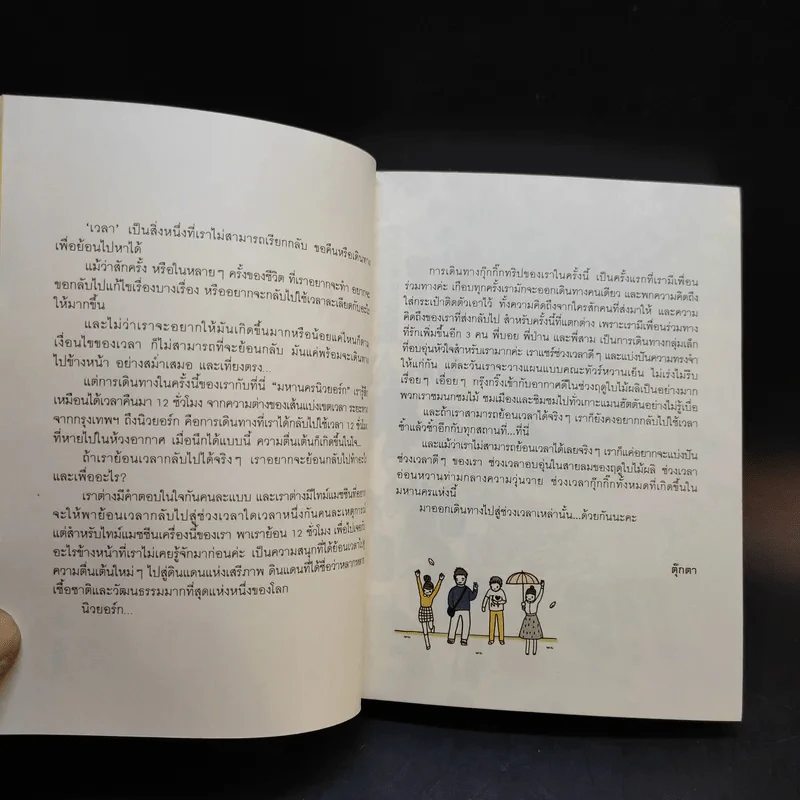 ‘เวลา’ เป็นสิ่งหนึ่งที่เราไม่สามารถเรียกกลับ ขอคืนหรือเดินทาง
เพื่อย้อนไปหาได้
แม้ว่าสักครั้ง หรือในหลายๆ ครั้งของชีวิต ที่เราอยากจะทำ
ขอกลับไปแก้ไขเรื่องบางเรื่อง หรืออยากจะกลับไปใช้เวลาละเลียดกับอะไร
ให้มากขึ้น
และไม่ว่าเราจะอยากให้มันเกิดขึ้นมากหรือน้อยแค่ไหนก็ตาม
เงื่อนไขของเวลา ก็ไม่สามารถที่จะย้อนกลับ มันแค่พร้อมจะเดินทาง
ไปข้างหน้า อย่างสม่ำเสมอ และเที่ยงตรง...
แต่การเดินทางในครั้งนี้ของเรากับพี่นี่ “มหานครนิวยอร์ก” เรารู้สึก
เหมือนได้เวลาคืนมา 12 ชั่วโมง จากความต่างของเส้นแบ่งเขตเวลา
จากกรุงเทพฯ ถึงนิวยอร์ก คือการเดินทางที่เราได้กลับไปใช้เวลา 12 ชั่วโมง
ที่หายไปในห้วงอากาศ เมื่อนึกได้แบบนี้ ความตื่นเต้นก็เกิดขึ้นในใจ...
ถ้าเราย้อนเวลากลับไปได้จริงๆ เราอยากจะย้อนกลับไปทำอะไร
และเพื่ออะไร?
เราต่างมีคำตอบในใจกันคนละแบบ และเราต่างมีไทม์แมชชีนที่อยาก
จะให้พาย้อนกลับไปสู่ช่วงเวลาใดเวลาหนึ่งกันคนละเหตุการณ์
แต่สำหรับไทม์แมชชีนเครื่องนี้ของเรา พาเราย้อน 12 ชั่วโมง เพื่อไปเจอกับ
อะไรข้างหน้าที่เราไม่เคยรู้จักมาก่อนค่ะ เป็นความสนุกที่ได้ย้อนเวลาไปสู่
ความตื่นเต้นใหม่ๆ ไปสู่ดินแดนแห่งเสรีภาพ ดินแดนที่ได้ชื่อว่าหลากหลาย
เชื้อชาติและวัฒนธรรมมากที่สุดแห่งหนึ่งของโลก
นิวยอร์ก...
การเดินทางกุ๊กกิ๊กทริปของเราในครั้งนี้ เป็นครั้งแรกที่เรามีเพื่อน
ร่วมทางค่ะ เกือบทุกครั้งเรามักจะออกเดินทางคนเดียว และพกความคิดถึง
ใส่กระเป๋าติดตัวเอาไว้ ทั้งความคิดถึงจากใครสักคนที่ส่งมาให้ และความ
คิดถึงของเราที่ส่งกลับไป สำหรับครั้งนี้ที่แตกต่าง เพราะเรามีเพื่อนร่วมทาง
ที่รักเพิ่มขึ้นอีก 3 คน พี่บอย พี่ป่าน และพี่สาม เป็นการเดินทางกลุ่มเล็ก
ที่อบอุ่นหัวใจสำหรับเรามากค่ะ เราแชร์ช่วงเวลาดีๆ และแบ่งปันความทรงจำ
ให้แก่กัน แต่ละวันเราจะวางแผนแบบคณะทัวร์หวานเย็น ไม่เร่งไม่รีบ
เรื่อยๆ เอื่อยๆ กรุ๊งกริ๊งเข้ากับอากาศดีในช่วงฤดูใบไม้ผลิเป็นอย่างมาก
พวกเราชมนกชมไม้ ชมเมืองและชิมชมไปทั่วเกาะแมนฮัตตันอย่างไม่รู้เบื่อ
และถ้าเราสามารถย้อนเวลาได้จริงๆ เราก็ยังคงอยากกลับไปใช้เวลา
ซ้ำแล้วซ้ำอีกกับทุกสถานที่...ที่นี่
และแม้ว่าเราไม่สามารถย้อนเวลาได้เลยจริงๆ เราก็แค่อยากจะแบ่งปัน
ช่วงเวลาดีๆ ของเรา ช่วงเวลาอบอุ่นในสายลมของฤดูใบไม้ผลิ ช่วงเวลา
อ่อนหวานท่ามกลางความวุ่นวาย ช่วงเวลากุ๊กกิ๊กทั้งหมดที่เกิดขึ้นใน
มหานครแห่งนี้
มาออกเดินทางไปสู่ช่วงเวลาเหล่านั้น...ด้วยกันนะคะ
ตุ๊กตา